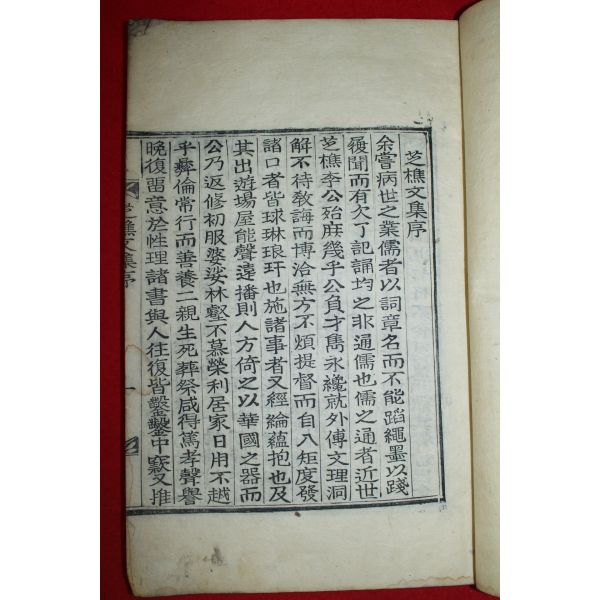 芝樵文集序
余嘗病世之業儒者以詞章名而不能蹈繩墨以踐
履聞而有欠了記誦均之非通儒也儒之通者近世
芝樵李公殆庶幾乎公負才雋永纔就外傅文理洞
解不待敎誨而博洽無方不煩提督而自入矩度發
諸口者皆球琳琅玕也施諸事者又經綸蘊抱也及
其出遊塲屋能聲遠播則人方倚之以華國之器而
公乃返修初服婆娑林壑不慕榮利居家日用不越
乎彛倫常行而善養二親生死葬祭咸得篤孝聲譽
晩復畱意於性理諸書與人往復皆鑿鑿中竅又推
芝樵文集序
一